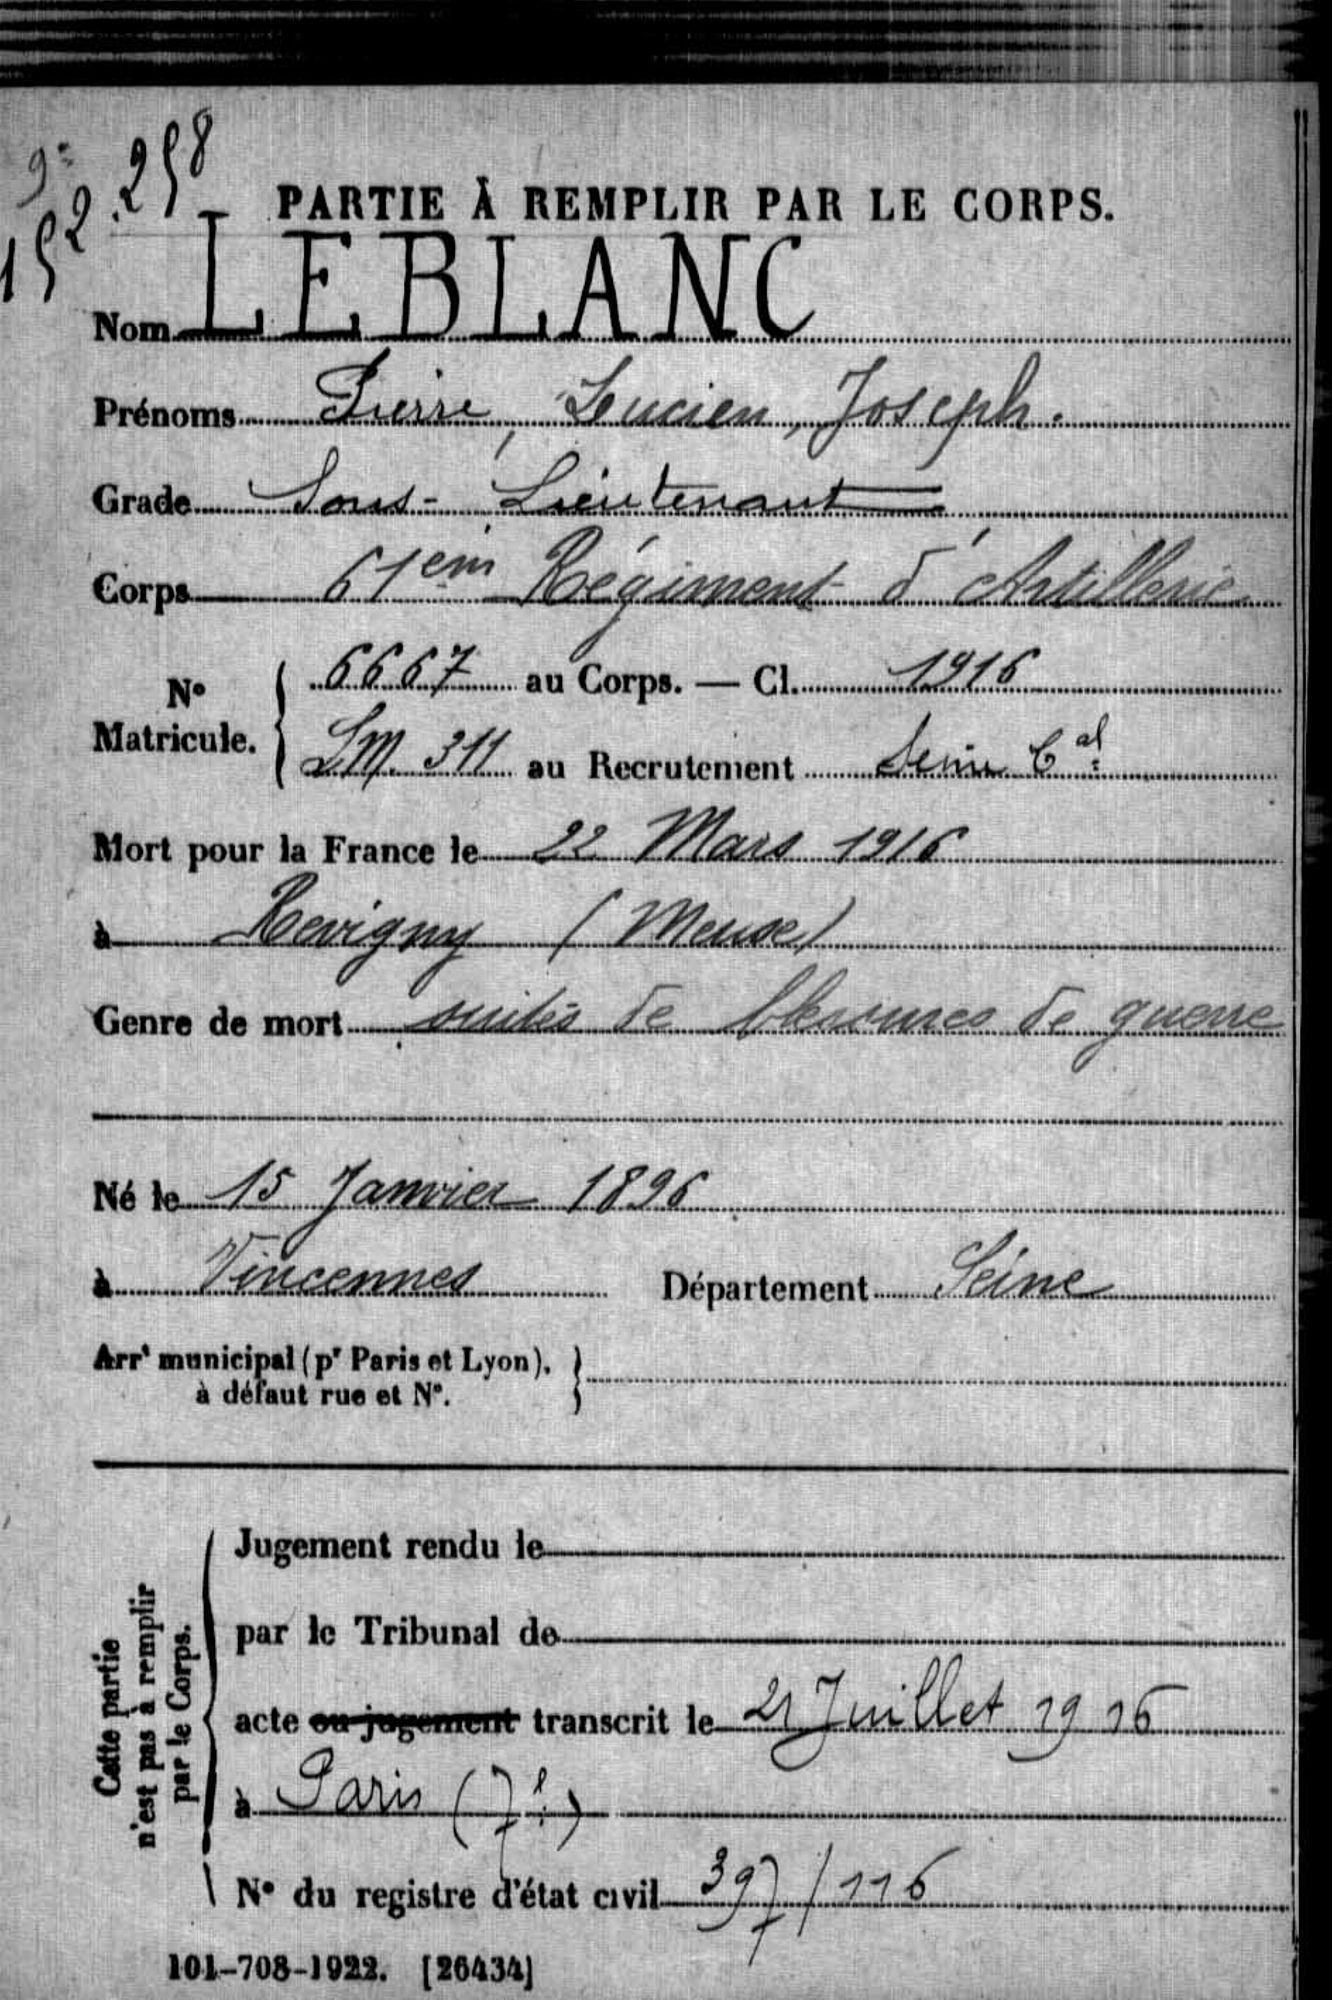 9e
152.258
PARTIE À REMPLIR PAR LE CORPS.
Nom LEBLANC
Prénoms Pierre, Lucien, Joseph.
Grade Sous-Lieutenant
Corps 61em Régiment d'Artillerie
N° Matricule. { 6667 au Corps. — Cl. 1916
LM. 311 au Recrutement Seine Cal
Mort pour la France le 22 Mars 1916
à Revigny (Meuse)
Genre de mort suites de blessures de guerre
Né le 15 Janvier 1896
à Vincennes Département Seine
Arrt municipal (pr Paris et Lyon), }
à défaut rue et N°.
Cette partie n'est pas à remplir par le Corps.
Jugement rendu le
par le Tribunal de
acte ou jugement transcrit le 21 Juillet 1916
à Paris (7e)
N° du registre d'état civil 397/116
101-708-1922. [26434]